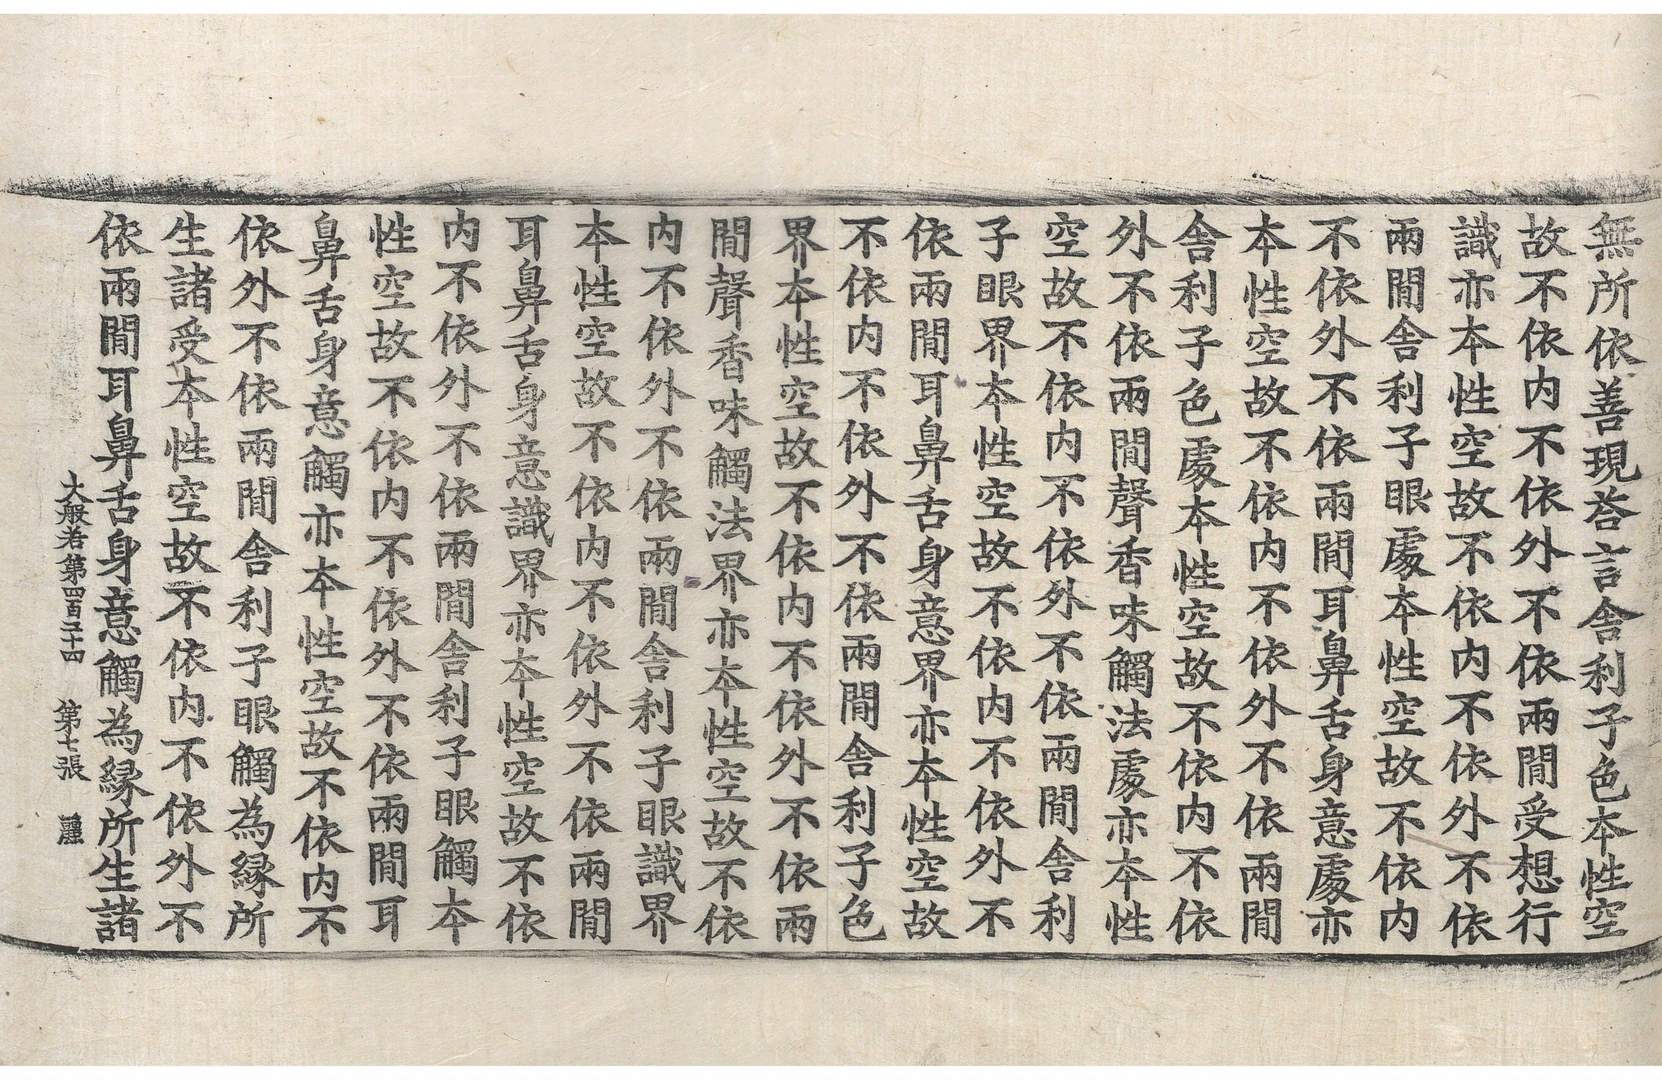 無所依善現荅言舎利子色本性空
故不依内不依外不依兩閒受想行
識亦本性空故不依内不依外不依
兩閒舎利子眼處本性空故不依内
不依外不依兩閒耳鼻舌身意處亦
本性空故不依内不依外不依兩閒
舎利子色處本性空故不依内不依
外不依兩閒聲香味觸法處亦本性
空故不依内不依外不依兩閒舎利
子眼界本性空故不依内不依外不
依兩閒耳鼻舌身意界亦本性空故
不依内不依外不依兩閒舎利子色
界本性空故不依内不依外不依兩
閒聲香味觸法界亦本性空故不依
内不依外不依兩閒舎利子眼識界
本性空故不依内不依外不依兩閒
耳鼻舌身意識界亦本性空故不依
内不依外不依兩閒舎利子眼觸本
性空故不依内不依外不依兩閒耳
鼻舌身意觸亦本性空故不依内不
依外不依兩閒舎利子眼觸為縁所
生諸受本性空故不依内不依外不
依兩閒耳鼻舌身意觸為縁所生諸
大般若第四百二十四 第七張 麗